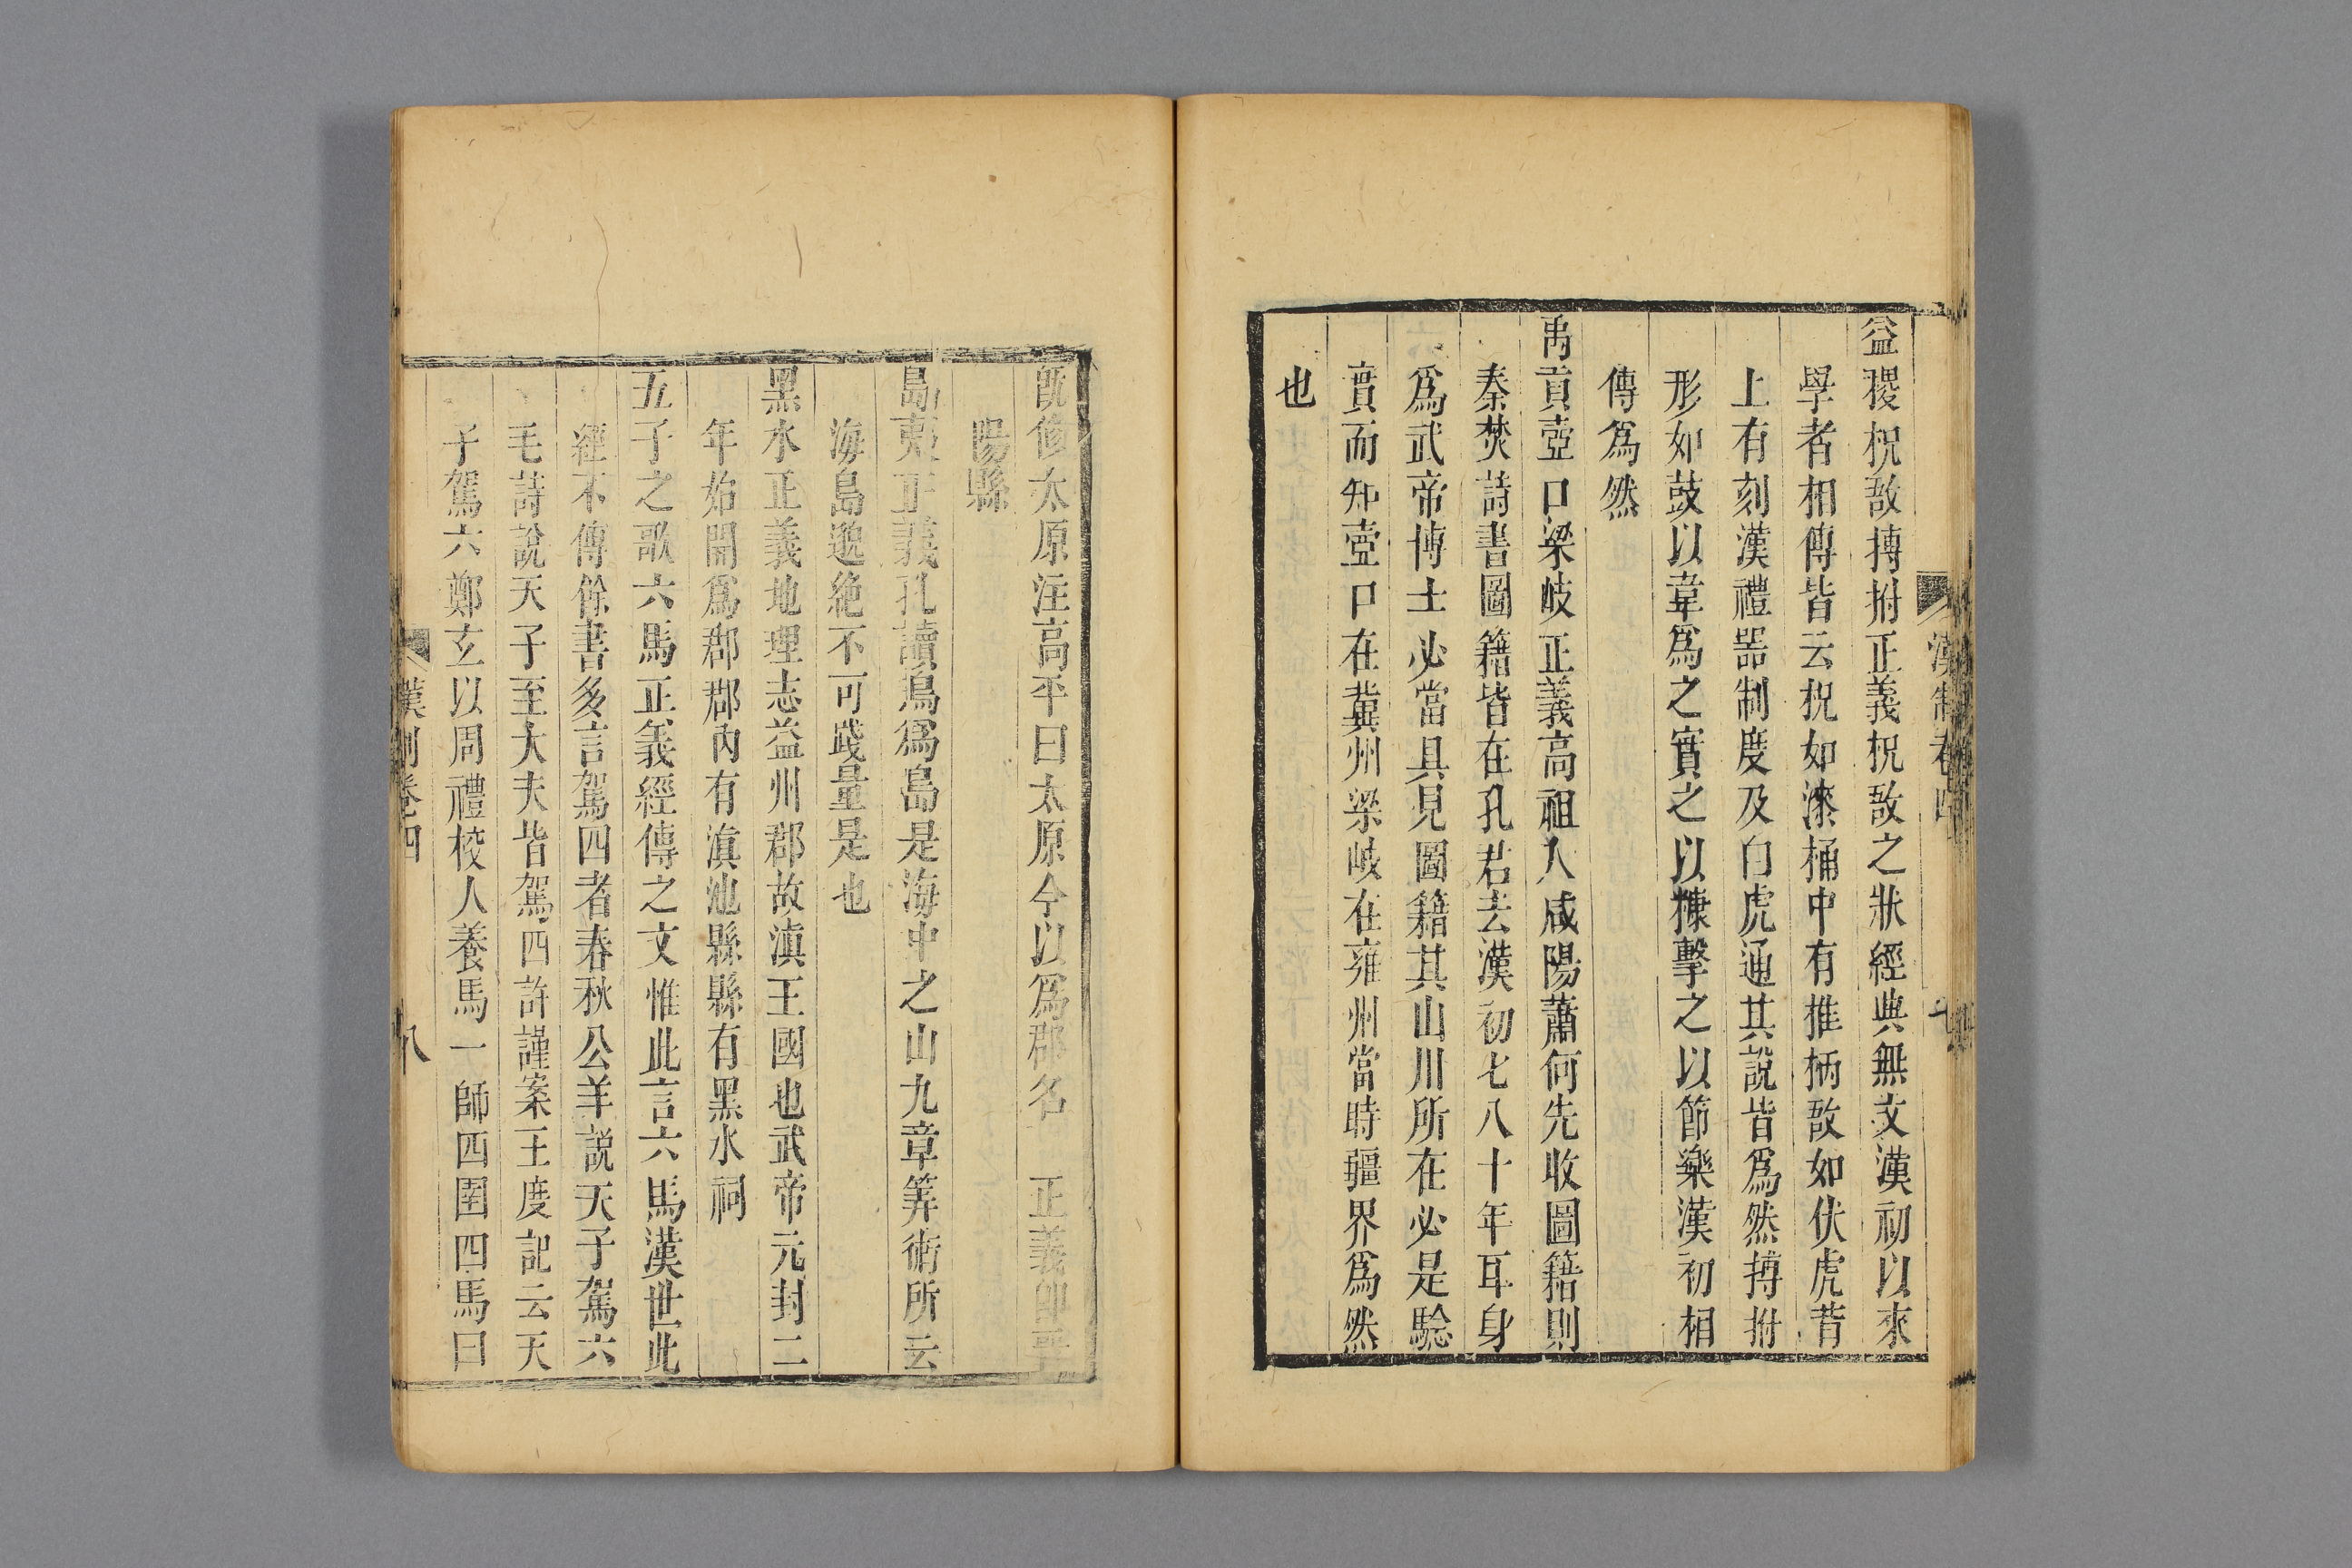 漢制卷四
七
益稷柷敔搏拊正義柷敔之狀經典無文漢初以來
學者相傳皆云柷如漆桶中有推柄敔如伏虎背
上有刻漢禮噐制度及白虎通其說皆爲然搏拊
形如鼓以韋爲之實之以糠擊之以節樂漢初相
傳爲然
禹貢壺口梁岐正義高祖入咸陽蕭何先收圖籍則
秦焚詩書圖籍皆在孔君去漢初七八十年耳身
爲武帝博士必當具見圖籍其山川所在必是驗
實而知壺口在冀州梁岐在雍州當時疆界爲然
也
旣修太原注高平曰太原今以爲郡名 正義卽晉
陽縣
島夷正義孔讀鳥爲島是海中之山九章筭術所云
海島邈絶不可踐量是也
黑水正義地理志益州郡故滇王國也武帝元封二
年始開爲郡郡內有滇池縣縣有黑水祠
五子之歌六馬正義經傳之文惟此言六馬漢世此
經不傳餘書多言駕四者春秋公羊説天子駕六
毛詩說天子至大夫皆駕四許謹案王度記云天
子駕六鄭玄以周禮校人養馬一師四圉四馬曰
漢制卷四
八